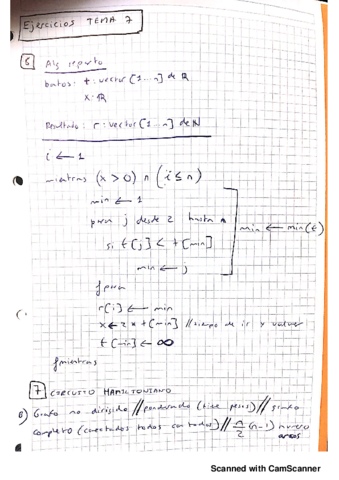 Ejercicios TEMA 7
6 Alg reparto
Datos: t: vector [1...n] de R
x: R
Resultado: r: vector [1...n] de N
i ← 1
mientras (x > 0) ∧ (i ≤ n)
min ← 1
para j desde 2 hasta n
si t[j] < t[min]
min ← j
min ← min(t)
fpara
r[i] ← min
x ← 2 * t[min] // tiempo de ir y volver
t[min] ← ∞
fmientras
7 CIRCUITO HAMILTONIANO
Grafo no dirigido // ponderado (tiene pesos) // grafo
completo (conectados todos con todos) // n/2 (n-1) número
arcos
Scanned with CamScanner